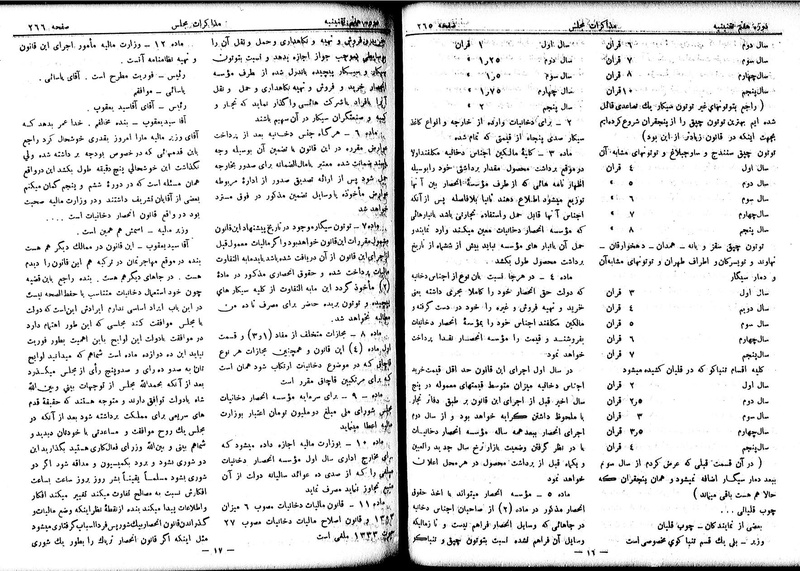 دوره هفتم تقنینیه
مذاکرات مجلس
صفحه ۲۶۵
سال دوم ۶ قران
سال سوم ۷ قران
سال چهارم ۸ قران
سال پنجم ۱۰ قران
( راجع بتوتونهای غیر توتون سیگار یک تصاعدی قائل
شده ایم بهترین توتون چپق را از پنجقران شروع کرده ایم
بجهت اینکه در قانون زیادتر از این بود )
توتون چپق سنندج و ساوجبلاغ و توتونهای مشابه آن
سال اول ۴ قران
سال دوم ۵ »
سال سوم ۶ »
سال چهارم ۷ »
سال پنجم ۸ »
توتون چپق سقز و بانه – همدان – دهخوارقان –
نهاوند و تویسرکان و اطراف طهران و توتونهای مشابه آن
و دمار سیگار
سال اول ۳ قران
سال دویم ۴ قران
سال سوم ۵ قران
سال چهارم ۶ قران
سال پنجم ۷ قران
کلیه اقسام تنباکو که در قلیان کشیده میشود
سال اول ۲ قران
سال دوم ۲٫۵ قران
سال سوم ۳ قران
سال چهارم ۳٫۵ قران
سال پنجم ۴ قران
( در آن قسمت قبلی که عرض کردم از سال سوم
ببعد دمار سیگار اضافه نمیشود و همان پنجقران که
حالا هم هست باقی میماند )
چوب قلیانی ...
بعضی از نمایندگان – چوب قلیان
وزیر – بلی یک قسم تنباکوی مخصوصی است
سال اول ۱ قران
سال دوم ۱٫۲۵ »
سال سوم ۱٫۵ »
سال چهارم ۱٫۷۵ »
سال پنجم ۲ »
۲ – برای دخانیات وارده از خارجه و انواع کاغذ
سیگار صدی پنجاه از قیمتی که تمام شده
ماده ۳ – کلیه مالکین اجناس دخانیه مکلفند اولا
در موقع برداشت محصول مقدار برداشتی خود را بوسیله
اظهار نامه هائی که از طرف مؤسسه انحصار بین آنها
توزیع میشود اطلاع دهند ثانیا بلافاصله پس از آنکه
اجناس آنها قابل حمل و استفاده تجارتی باشد بانبارهائی
که مؤسسه انحصار دخانیات معین میکند وارد نمایند و
حمل آن بانبار های مؤسسه نباید بیش از ششماه از تاریخ
برداشت محصول طول بکشد.
ماده ۴ – در هرجا نسبت بآن نوع از اجناس دخانیه
که دولت حق انحصار خود را کاملا بجری داشته یعنی
خرید و تهیه فروش و غیره را خود در دست گرفته و
مالکین مکلفند اجناس خود را بمؤسسه انحصار دخانیات
بفروشند و قیمت را مؤسسه انحصار نقدا پرداخت
خواهد نمود
در سال اول اجرای این قانون حد اقل قیمت خرید
اجناس دخانیه میزان متوسط قیمتهای معموله در پنج
سال اخیر قبل از اجرای این قانون بر طبق دفاتر تجار
با ملحوظ داشتن کرایه خواهد بود و از سال دوم
اجرای انحصار ببعد همه ساله مؤسسه انحصار دخانیات
با در نظر گرفتن وضعیت بازار نرخ سال جدید را معین
و یکماه قبل از برداشت محصول در هر محل اعلان
خواهد نمود
ماده ۵ – مؤسسه انحصار میتواند با اخذ حقوق
انحصار مذکور در ماده (۲) از صاحبان اجناس دخانی
در جاهائی که وسایل انحصار فراهم نیست و تا زمانیکه
وسایل آن فراهم نشده است بتوتون چپق و تنباکو
– ۱۶ –
دوره هفتم تقنینیه
مذاکرات مجلس
صفحه ۲۶۶
فروش و تهیه و نگاهداری و حمل و نقل آن را
بموجب جواز اجازه بدهد و نسبت بتوتون
سیگار پیچیده باندرل شده از طرف مؤسسه
خرید و فروش و تهیه نگاهداری و حمل و نقل
بافراد یا شرکت هائی واگذار نماید که تجار و
کسبه و صنعتگران سیگار در آن سهیم باشند
ماده ۶ – هر گاه جنس دخانیه بعد از پرداخت
عوارض مقرره در این قانون یا تضمین آن بوسیله وجه
نقد یا ضمانت شده معتبر بامال الضمانه برای صدور بخارجه
حمل شود پس از ارائه تصدیق صدور از اداره مربوطه
عوارض مأخوذه یا وسایل تضمین مذکور در فوق مسترد
خواهد شد
ماده ۷ – توتون سیگار موجود در تاریخ پیشنهاد این قانون
مشمول مقررات این قانون خواهد بود و اگر مالیات معمول قبل
از اجرای این قانون از آن دریافت شده باشد باید مابه التفاوت
مالیات پرداخت شده و حقوق انحصاری مذکور در ماده
(۲) مأخوذ گردد این مابه التفاوت از کلیه سیگار های
پیچیده و توتون بریده حاضر برای مصرف تا ده من
مطالبه نخواهد شد
ماده ۸ – مجازات متخلف از مفاد (۱ و ۳) و قسمت
اول ماده (۴) این قانون و همچنین مجازات هر نوع
قاچاقی که در موضوع دخانیات ارتکاب شود همان است
که برای مرتکبین قاچاق مقرر است
ماده ۹ – برای سرمایه مؤسسه انحصار دخانیات
مجلس شورای ملی مبلغ دو ملیون تومان اعتبار بوزارت
مالیه اعطا مینماید
ماده ۱۰ – بوزارت مالیه اجازه داده میشود که
برای مخارج اداری سال اول مؤسسه انحصار دخانیات
مبلغی را که از صدی ده عوائد سالیانه دولت از آن
منبع تجاوز نماید مصرف نماید
ماده ۱۱ – قانون مالیات دخانیات مصوب ۶ میزان
۱۲۹۴ و قانون اصلاح مالیات دخانیات مصوب ۲۷
حوت ۱۳۳۳ ملغی است
ماده ۱۲ – وزارت مالیه مأمور اجرای این قانون
و تهیه نظامنامه آنست.
رئیس – فوریت مطرح است . آقای یاسائی .
یاسائی – موافقم
رئیس – آقای آقا سید یعقوب .
آقا سید یعقوب – بنده مخالفم . خدا عمر بدهد که
آقای وزیر مالیه ما را امروز بقدری خوشحال کرد راجع
باین قدمهائی که در خصوص بودجه بر داشته شده ولی
نگذاشت این خوشحالی پنج دقیقه طول بکشد این در واقع
همان مسئله است که در دورۀ ششم و پنجم گمان میکنم
بعضی از آقایان تشریف داشتند و در وزارت مالیه صحبت
بود در واقع قانون انحصار دخانیات است ....
وزیر مالیه – اسمش هم همین است .
آقا سید یعقوب – این قانون در ممالک دیگر هم هست
بنده در موقع مهاجرتمان در ترکیه هم این قانون را دیدم
هست . در جاهای دیگر هم هست . بنده راجع باین قضیه
چون خود استعمال دخانیات متناسب با حفظ الصحه نیست
در این باب ایراد اساسی ندارم ایرادش این است که دولت
با مجلس موافقت کند مجلسی که این طور اهتمام دارد
در موافقت با دولت این لوایح باین اهمیت بطور فوریت
نباید این ده دوازده ماده است شماهم که میدانید لوایح
تان به صد ده رای و صد و پنج رأی از مجلس میگذرد
بعد از آنکه بحمدالله مجلس از توجهات بینی و بین الله
شاه با دولت توافق دارند و متوجه هستند که حقیقة قدم
های سریعی برای مملکت برداشته شود بعد از آنکه در
مجلس یک روح موافقت و مساعدتی با خودتان دیدید و
شماهم بینی و بین الله وزرای فعال کاری هستید بگذارید این
دو شوری نشود و برود بکمیسیون و مداقه شود اگر دو
شوری بشود مسلماً یقیناً بشر روز بروز ساعت بساعت
افکارش نسبت به مصالح تفاوت میکند تغییر میکند افکار
و اطلاعات پیدا میکند بنده از نقطۀ نظر اینکه وضع مالیات
گذراندن قانون انحصار بیک شور پس فردا اسباب گرفتاری میشود
مثل اینکه اگر قانون انحصار تریاک را بطور یک شوری
– ۱۷ –